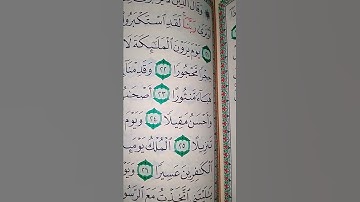 ۞ وَقَالَ ٱلَّذِينَ لَا
نَرَىٰ رَبَّنَا لَقَدِ ٱسْتَكْبَرُوا
٢١ يَوْمَ يَرَوْنَ ٱلْمَلَٰٓئِكَةَ لَا
حِجْرًا مَّحْجُورًا ٢٢ وَقَدِمْنَا
هَبَآءً مَّنثُورًا ٢٣ أَصْحَٰبُ
وَأَحْسَنُ مَقِيلًا ٢٤ وَيَوْمَ
تَنزِيلًا ٢٥ ٱلْمُلْكُ يَوْمَئِذٍ
ٱلْكَٰفِرِينَ عَسِيرًا ٢٦ وَيَوْمَ
يَٰلَيْتَنِى ٱتَّخَذْتُ مَعَ ٱلرَّسُولِ